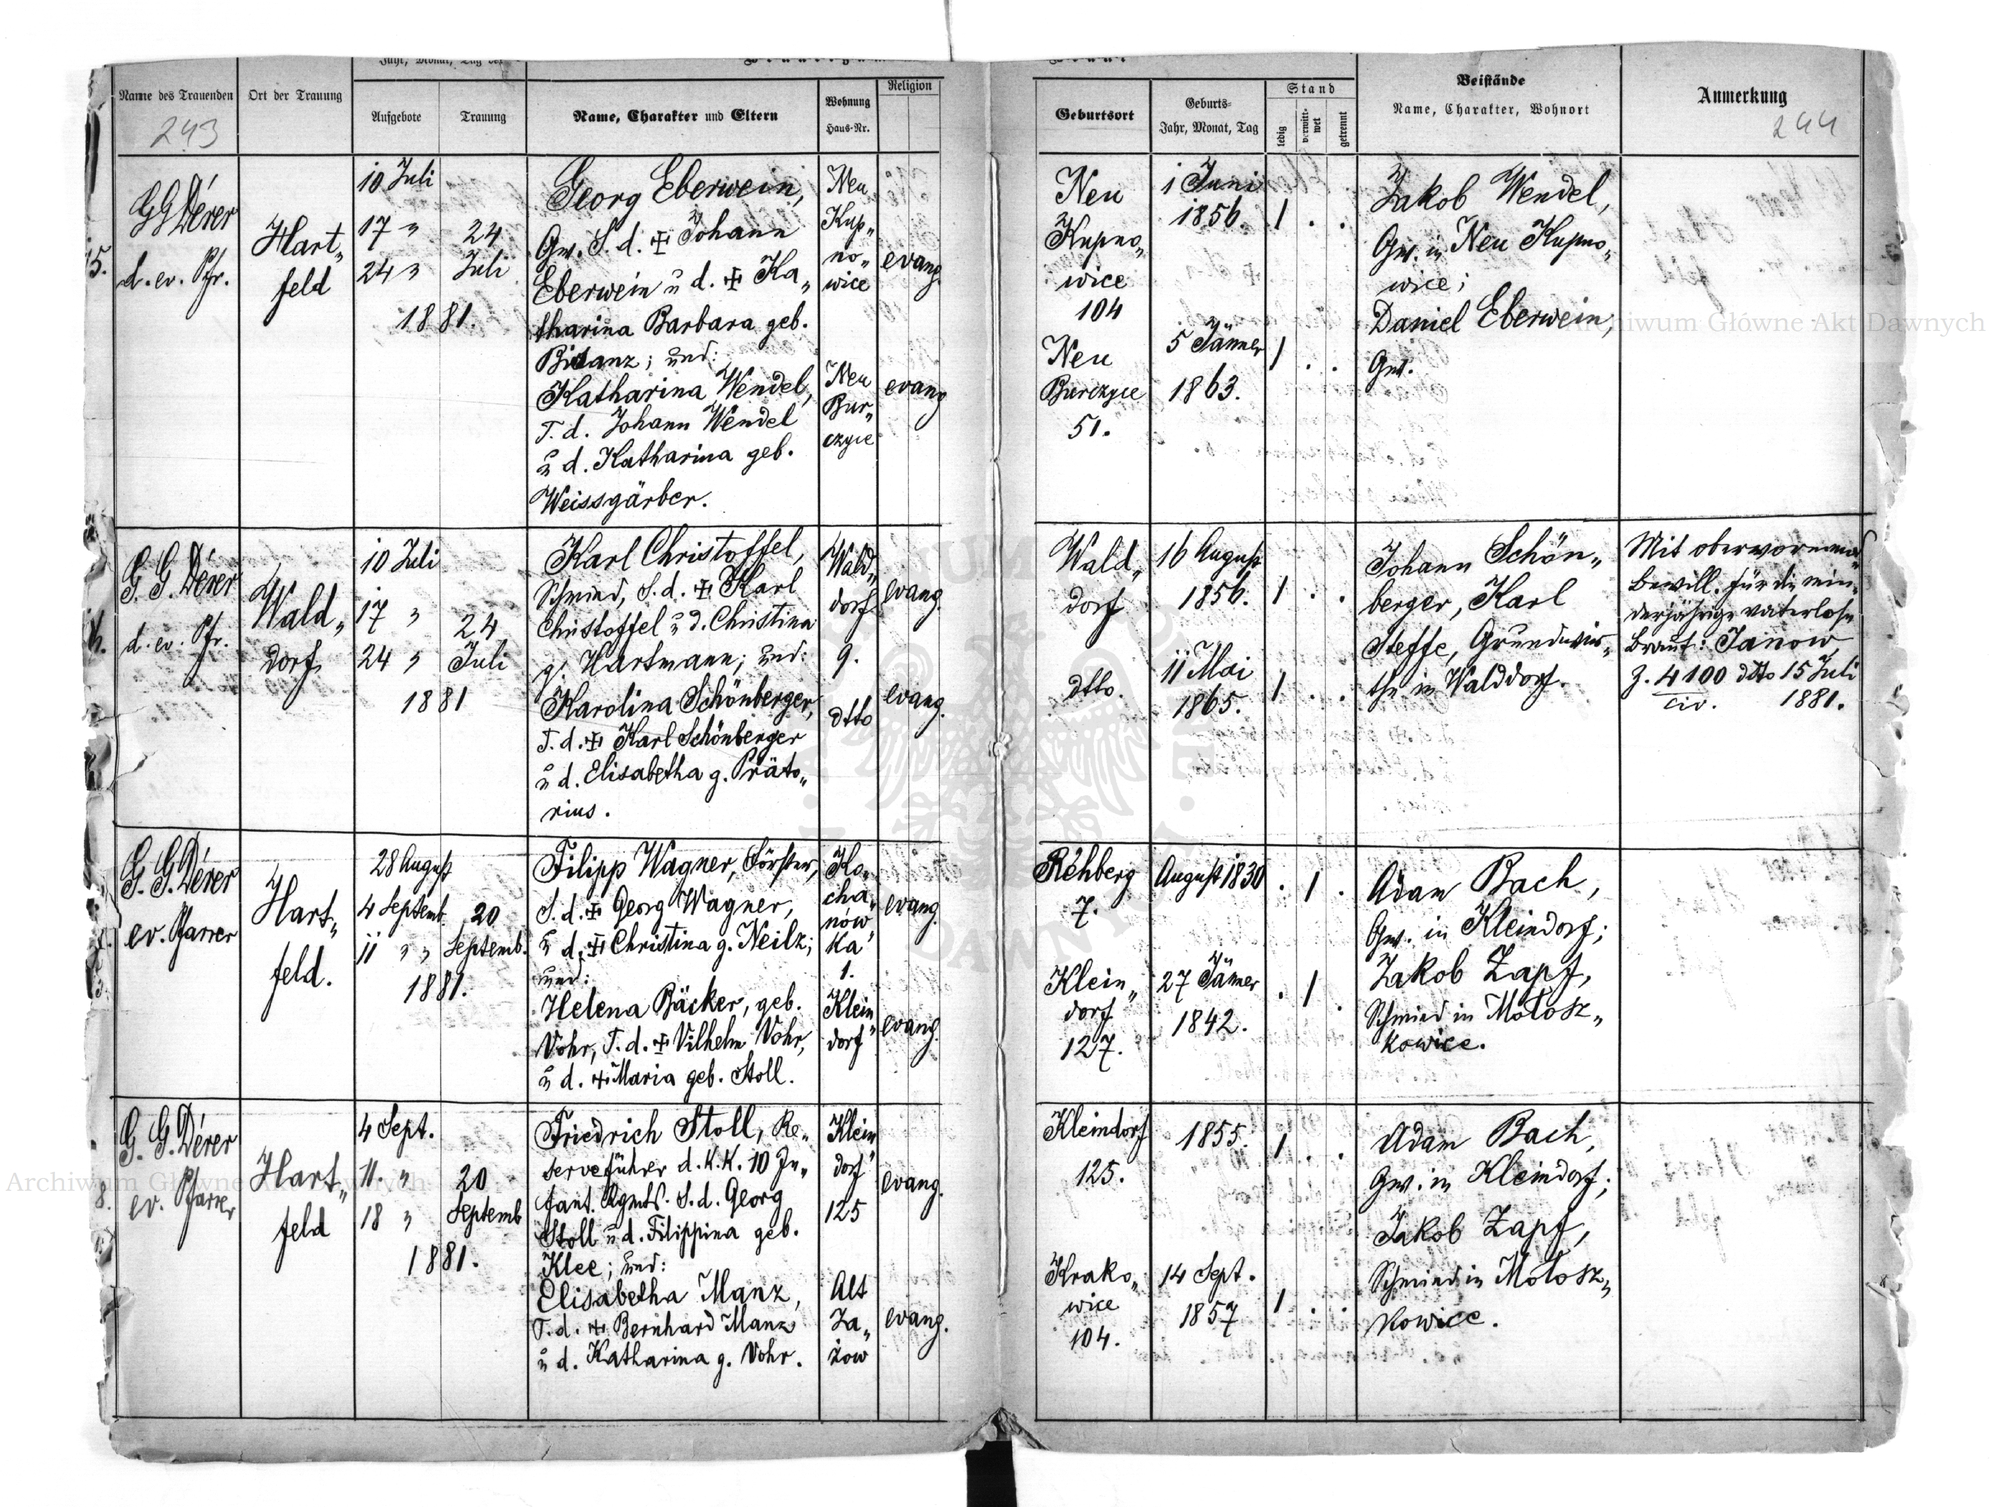 Name des Trauenden
243
Ort der Trauung
Jahr, Monat, Tag der
Aufgebote
Trauung
Name, Charakter und Eltern
Wohnung
Haus-Nr.
Religion
Geburtsort
Geburts-
Jahr, Monat, Tag
Stand
ledig
verwitt-
wet
getrennt
Beistände
Name, Charakter, Wohnort
Anmerkung
244
5.
G G Dérer
d. ev. Pfr.
Hart„
feld
10 Juli
17 "
24 "
24
Juli
1881.
Georg Eberwein,
Gw. S. d. ‡ Johann
Eberwein u d. ‡ Ka„
tharina Barbara geb.
Bisanz; und:
Katharina Wendel,
T. d. Johann Wendel
u d. Katharina geb.
Weissgärber.
Neu
Kup„
no„
wice
Neu
Bur„
czyce
evang.
evang
Neu
Kupno„
wice
104
Neu
Burczyce
51.
1 Juni
1856.
5 Jänner
1863.
1 . .
1 . .
Jakob Wendel,
Gw. in Neu Kupno„
wice;
Daniel Eberwein,
Gw.
G. G. Dérer
d. ev. Pfr.
Wald„
dorf
10 Juli
17 "
24 "
24
Juli
1881
Karl Christoffel,
Schmied, S. d. ‡ Karl
Christoffel u d. Christina
g. Hartmann; und:
Karolina Schönberger,
T. d. ‡ Karl Schönberger
u d. Elisabetha g. Präto„
rius.
Wald„
dorf
9.
dtto
evang.
evang.
Wald„
dorf
dtto.
16 August
1856.
11 Mai
1865.
1 . .
1 . .
Johann Schön„
berger, Karl
Steffe, Grundwir„
the in Walddorf.
Mit obervormund
Bewill. für die min„
derjährige vaterlose
Braut: Janow
Z. 4100 dtto 15 Juli
civ. 1881.
G. G. Dérer
ev. Pfarrer
Hart„
feld.
28 August
4 Septemb.
11 " "
20
Septemb.
1881.
Filipp Wagner, Förster,
S. d. ‡ Georg Wagner,
u d. ‡ Christina g. Neilz;
und:
Helena Bäcker, geb.
Vohr, T. d. ‡ Vilhelm Vohr,
u d. ‡ Maria geb. Stoll.
Ko„
cha„
nów„
ka
1.
Klein„
dorf
evang.
evang.
Rehberg
7.
Klein„
dorf
127.
August 1830
27 Jänner
1842.
. 1 .
. 1 .
Adam Bach,
Gw. in Kleindorf;
Jakob Zapf,
Schmied in Mołosz„
kowice.
8.
G. G. Dérer
ev. Pfarrer
Hart„
feld
4 Sept.
11. "
18 "
20
Septemb
1881.
Friedrich Stoll, Re„
serveführer d. k. k. 10 In„
fant. Rgmts. S. d. Georg
Stoll u d. Filippina geb.
Klee; und:
Elisabetha Manz,
T. d. ‡ Bernhard Manz
u d. Katharina g. Vohr.
Klein„
dorf
125
Alt
Ja„
żow
evang.
evang.
Kleindorf
125.
Krako„
wice
104.
1855.
14 Sept.
1857
1 . .
1 . .
Adam Bach,
Gw. in Kleindorf;
Jakob Zapf,
Schmied in Mołosz„
kowice.
Archiwum Główne Akt Dawnych
Archiwum Główne Akt Dawnych